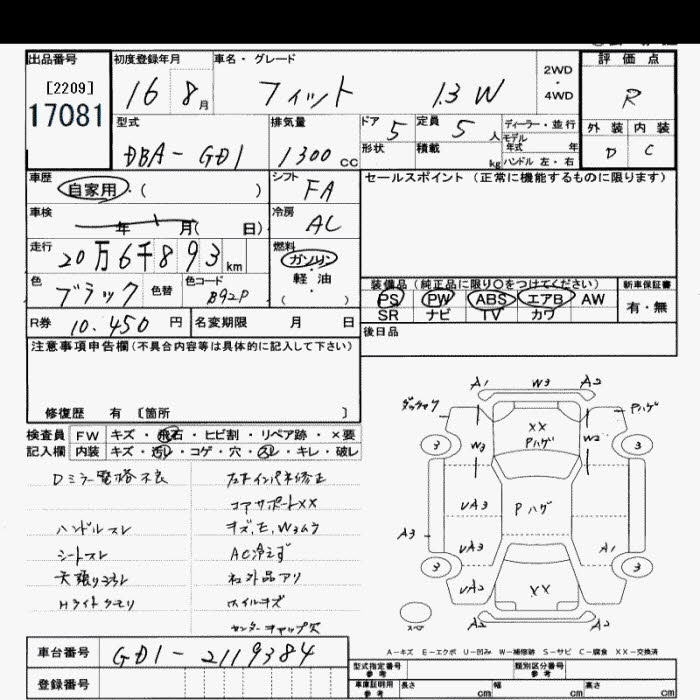 出品番号
[2209]
17081
初度登録年月
16 8月
車名・グレード
フィット 1.3 W
2WD
・
4WD
評価点
R
外装 内装
D C
型式
DBA-GD1
排気量
1300cc
ドア 5
定員 5人
形状 積載 kg
ディーラー・並行
モデル年式 年
ハンドル 左・右
車歴
自家用・( )
シフト
FA
車検
年 月( 日)
冷房
AC
走行
20万6千893km
燃料
ガソリン
軽油
( )
色
ブラック
色替
色コード
B92P
R券 10.450円
名変期限 月 日
セールスポイント (正常に機能するものに限ります)
装備品 (純正品に限り○をつけてください)
PS PW ABS エアB AW
SR ナビ TV カワ
新車保証書
有・無
後日品
注意事項申告欄(不具合内容等は具体的に記入して下さい)
修復歴 有 [箇所 ]
検査員記入欄
FW キズ・飛石・ヒビ割・リペア跡・×要
内装 キズ・汚レ・コゲ・穴・スレ・キレ・破レ
Dミラー電格不良
ハンドルスレ
シートスレ
Hライトクモリ
コアサポートXX
キズ,E,Wヨムラ
AC冷えず
社外品アリ
ホイルキズ
センターキャップ欠
A1 W3 A2
Pハゲ
XX
Pハゲ
3 3
W3 W2
UA3
Pハゲ
A3 UA3 A1
3 3
UA2 XX
スペア
A2 A2
A-キズ E-エクボ U-凹み W-補修跡 S-サビ C-腐食 XX-交換済
車台番号 GD1-2119384
登録番号
型式指定番号 参考
類別区分番号 参考
車庫証明用 参考
長さ cm 幅 cm 高さ cm